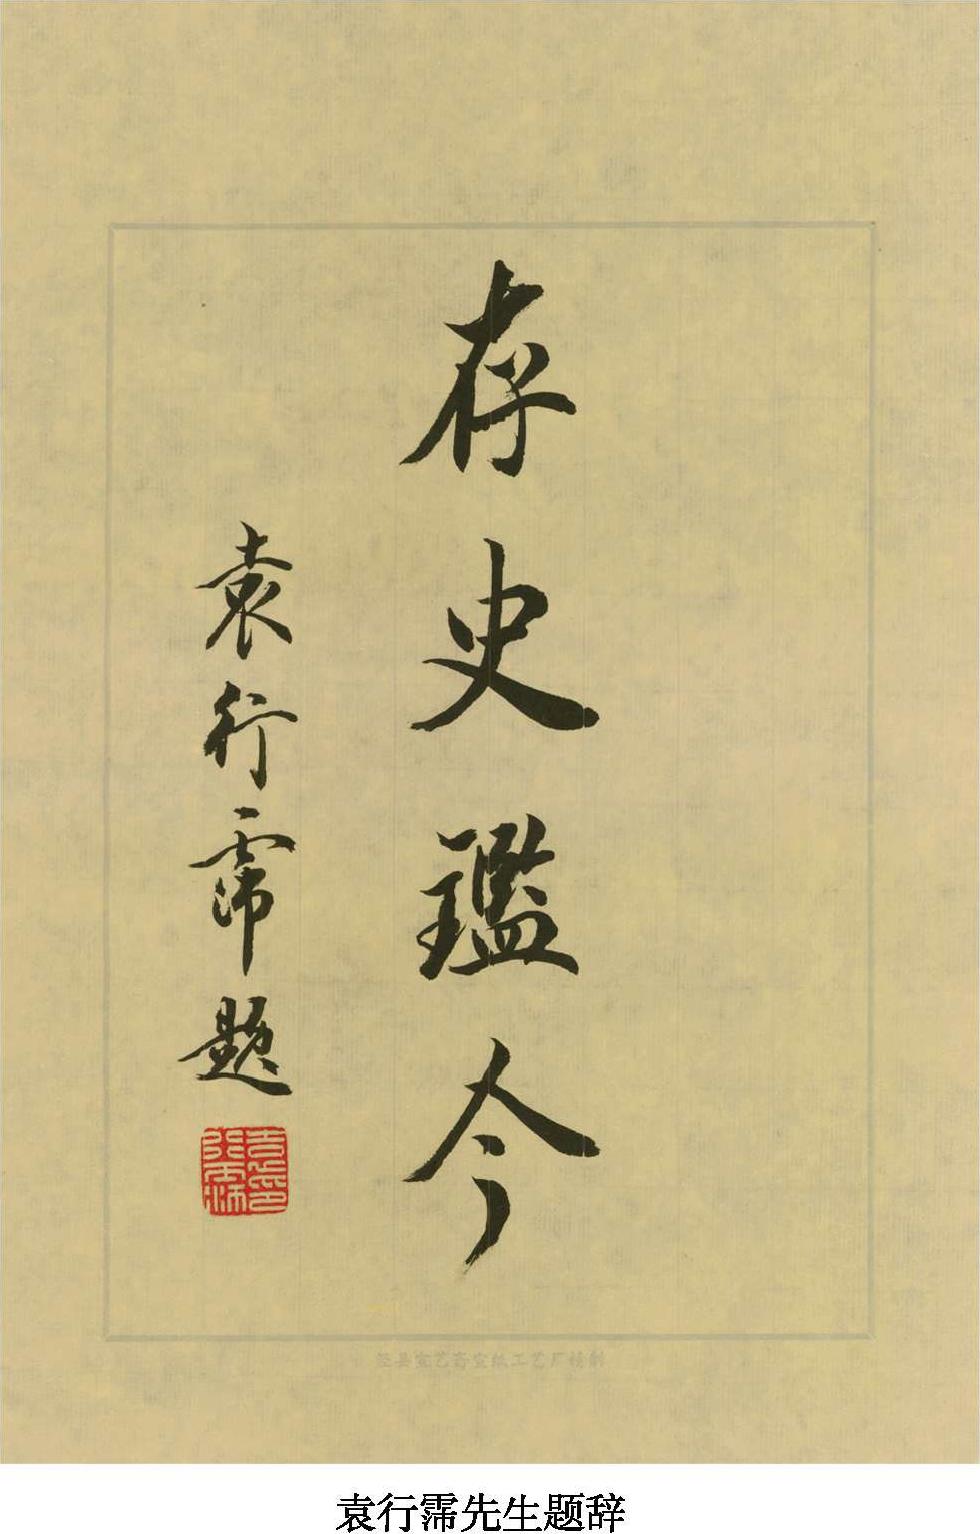 存史鑑今
袁行霈题
袁行霈印
泾县宣艺斋宣纸工艺厂精制
袁行霈先生题辞